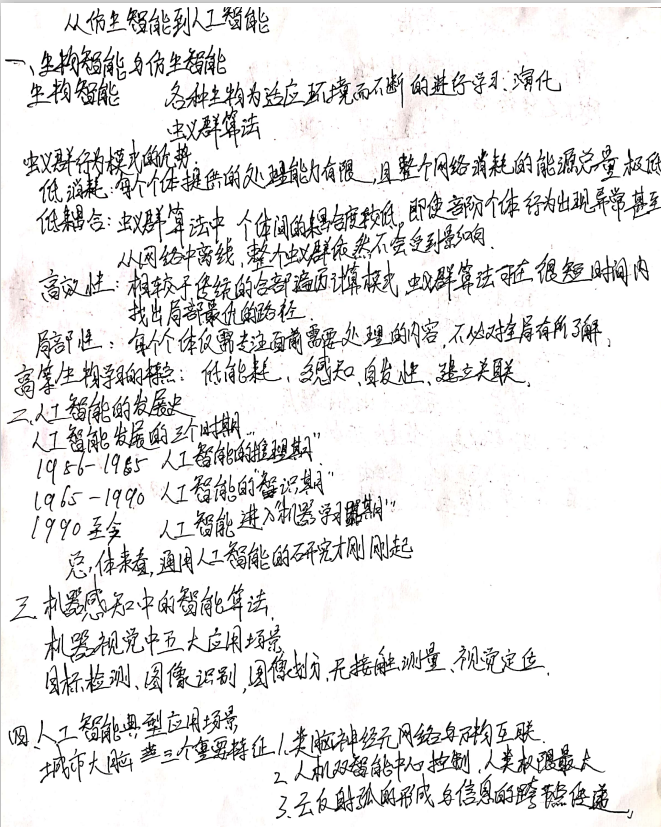 从仿生智能到人工智能
一、生物智能与仿生智能
生物智能 各种生物为适应环境而不断的进行学习、演化
蚁群算法
蚁群行为模式的优势.
低消耗:每个个体提供的处理能力有限,且整个网络消耗的能源总量极低
低耦合:蚁群算法中个体间的耦合度较低,即使部份个体行为出现异常甚至
从网络中离线,整个蚁群依然不会受到影响.
高效性:相较于传统的全部遍历计算模式 蚁群算法可在很短时间内
找出局部最优的路径.
局部性:每个个体仅需关注面前需要处理的内容,不必对全局有所了解,
高等生物学习的特点:低能耗、多感知、自发性、建立关联.
二.人工智能的发展史
人工智能发展的三个时期
1956-1965 人工智能的"推理期"
1965-1990 人工智能的"知识期"
1990至今 人工智能进入"机器学习期"
总体来看,通用人工智能的研究才刚刚起
三.机器感知中的智能算法.
机器视觉中五大应用场景
目标检测、图像识别,图像划分,无接触测量、视觉定位.
四.人工智能典型应用场景
城市大脑 三个重要特征 1.类脑神经元网络与万物互联.
2.人机双智能中心控制,人类权限最大
3.云反射弧的形成与信息的跨节点传递